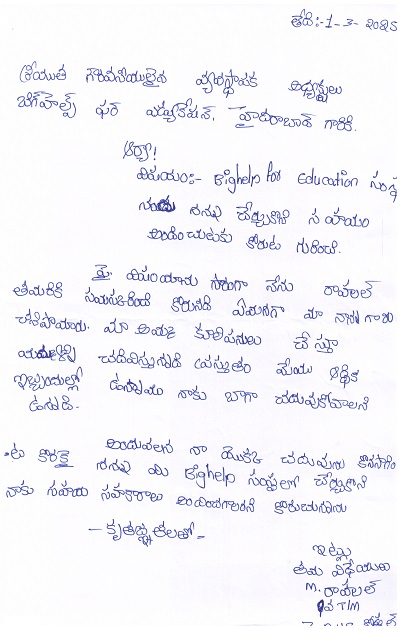 తేది:-1-3-2025
శ్రీయుత గౌరవనీయులైన వ్యవస్థాపక అధ్యక్షులు
బిగ్‌హెల్ప్ ఫర్ ఎడ్యుకేషన్, హైదరాబాద్ గారికి.
ఆర్యా!
విషయం:- Bighelp for Education సంస్థ
నందు నన్ను చేర్చుకొని సహాయం
అందించుటకు కోరుట గురించి.
పై విషయానుసారంగా నేను రాహుల్
తమరికి నమస్కరించి కోరునది ఏమనగా మా నాన్న గారు
చనిపోయారు. మా అమ్మ కూలిపనులు చేస్తూ
మమ్మల్ని చదివిస్తున్నది ప్రస్తుతం మేము ఆర్థిక
ఇబ్బందుల్లో ఉన్నాము నాకు బాగా చదువుకోవాలని
ఉన్నది.
అందువలన నా యొక్క చదువును కొనసాగిం
-చుట కొరకై నన్ను మీ Bighelp సంస్థలో చేర్చుకొని
నాకు సహాయ సహకారాలు అందించగలరని కోరుచున్నాను
- కృతజ్ఞతలతో -
ఇట్లు
తమ విధేయుడు
M. రాహుల్
9వ T/M